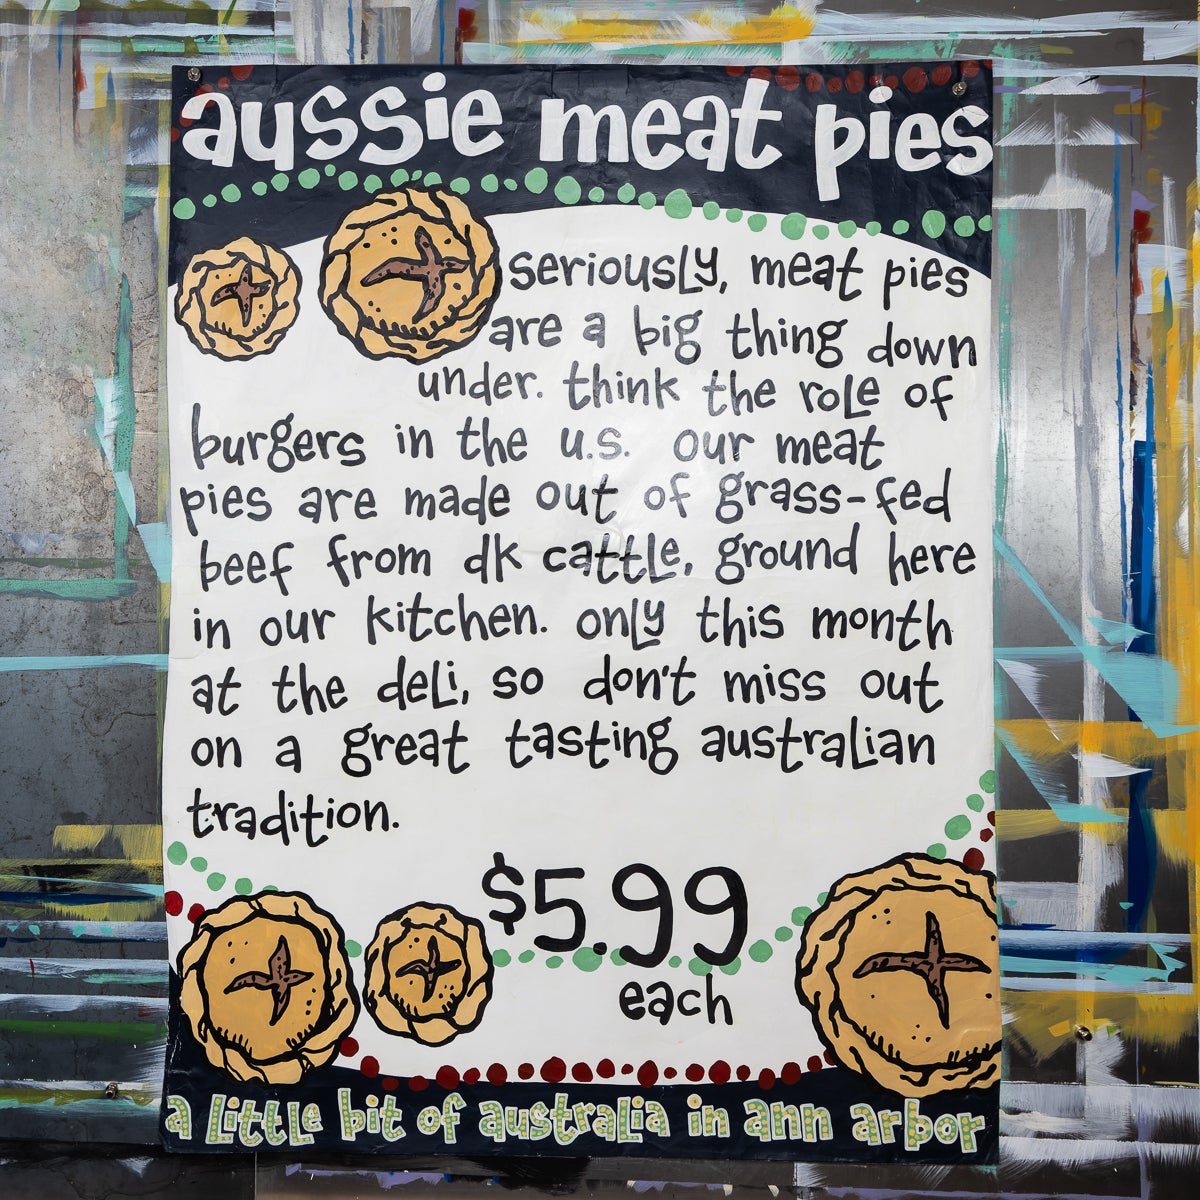 aussie meat pies
seriously, meat pies
are a big thing down
under. think the role of
burgers in the u.s. our meat
pies are made out of grass-fed
beef from dk cattle, ground here
in our kitchen. only this month
at the deli, so don't miss out
on a great tasting australian
tradition.
$5.99
each
a little bit of australia in ann arbor